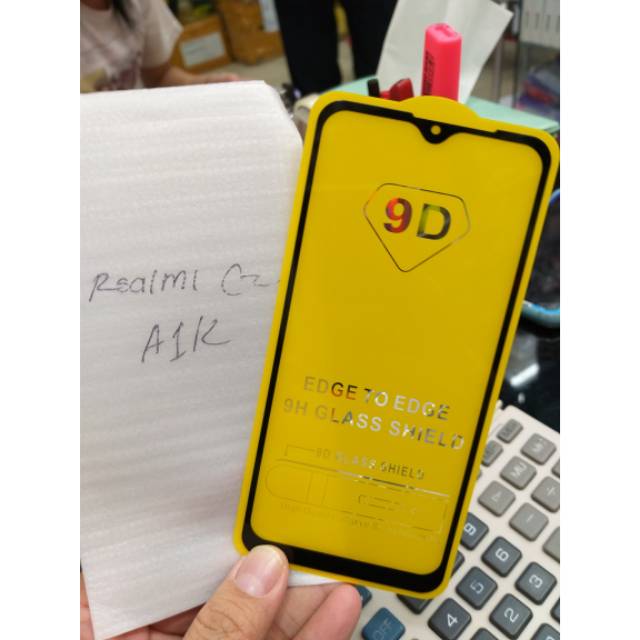 Realmi C2
A1K
9D
EDGE TO EDGE
9H GLASS SHIELD
9D GLASS SHIELD
MU
OFF
9
8
6
5
3
2